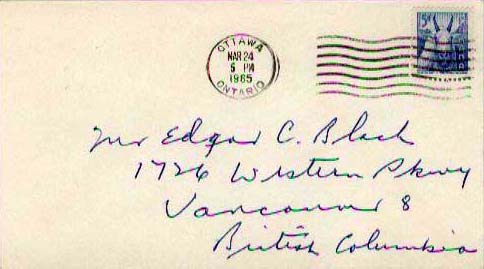 OTTAWA
MAR 24
5 PM
1965
ONTARIO
5
Mr Edgar C. Black
1726 Western Pkwy
Vancouver 8
British Columbia